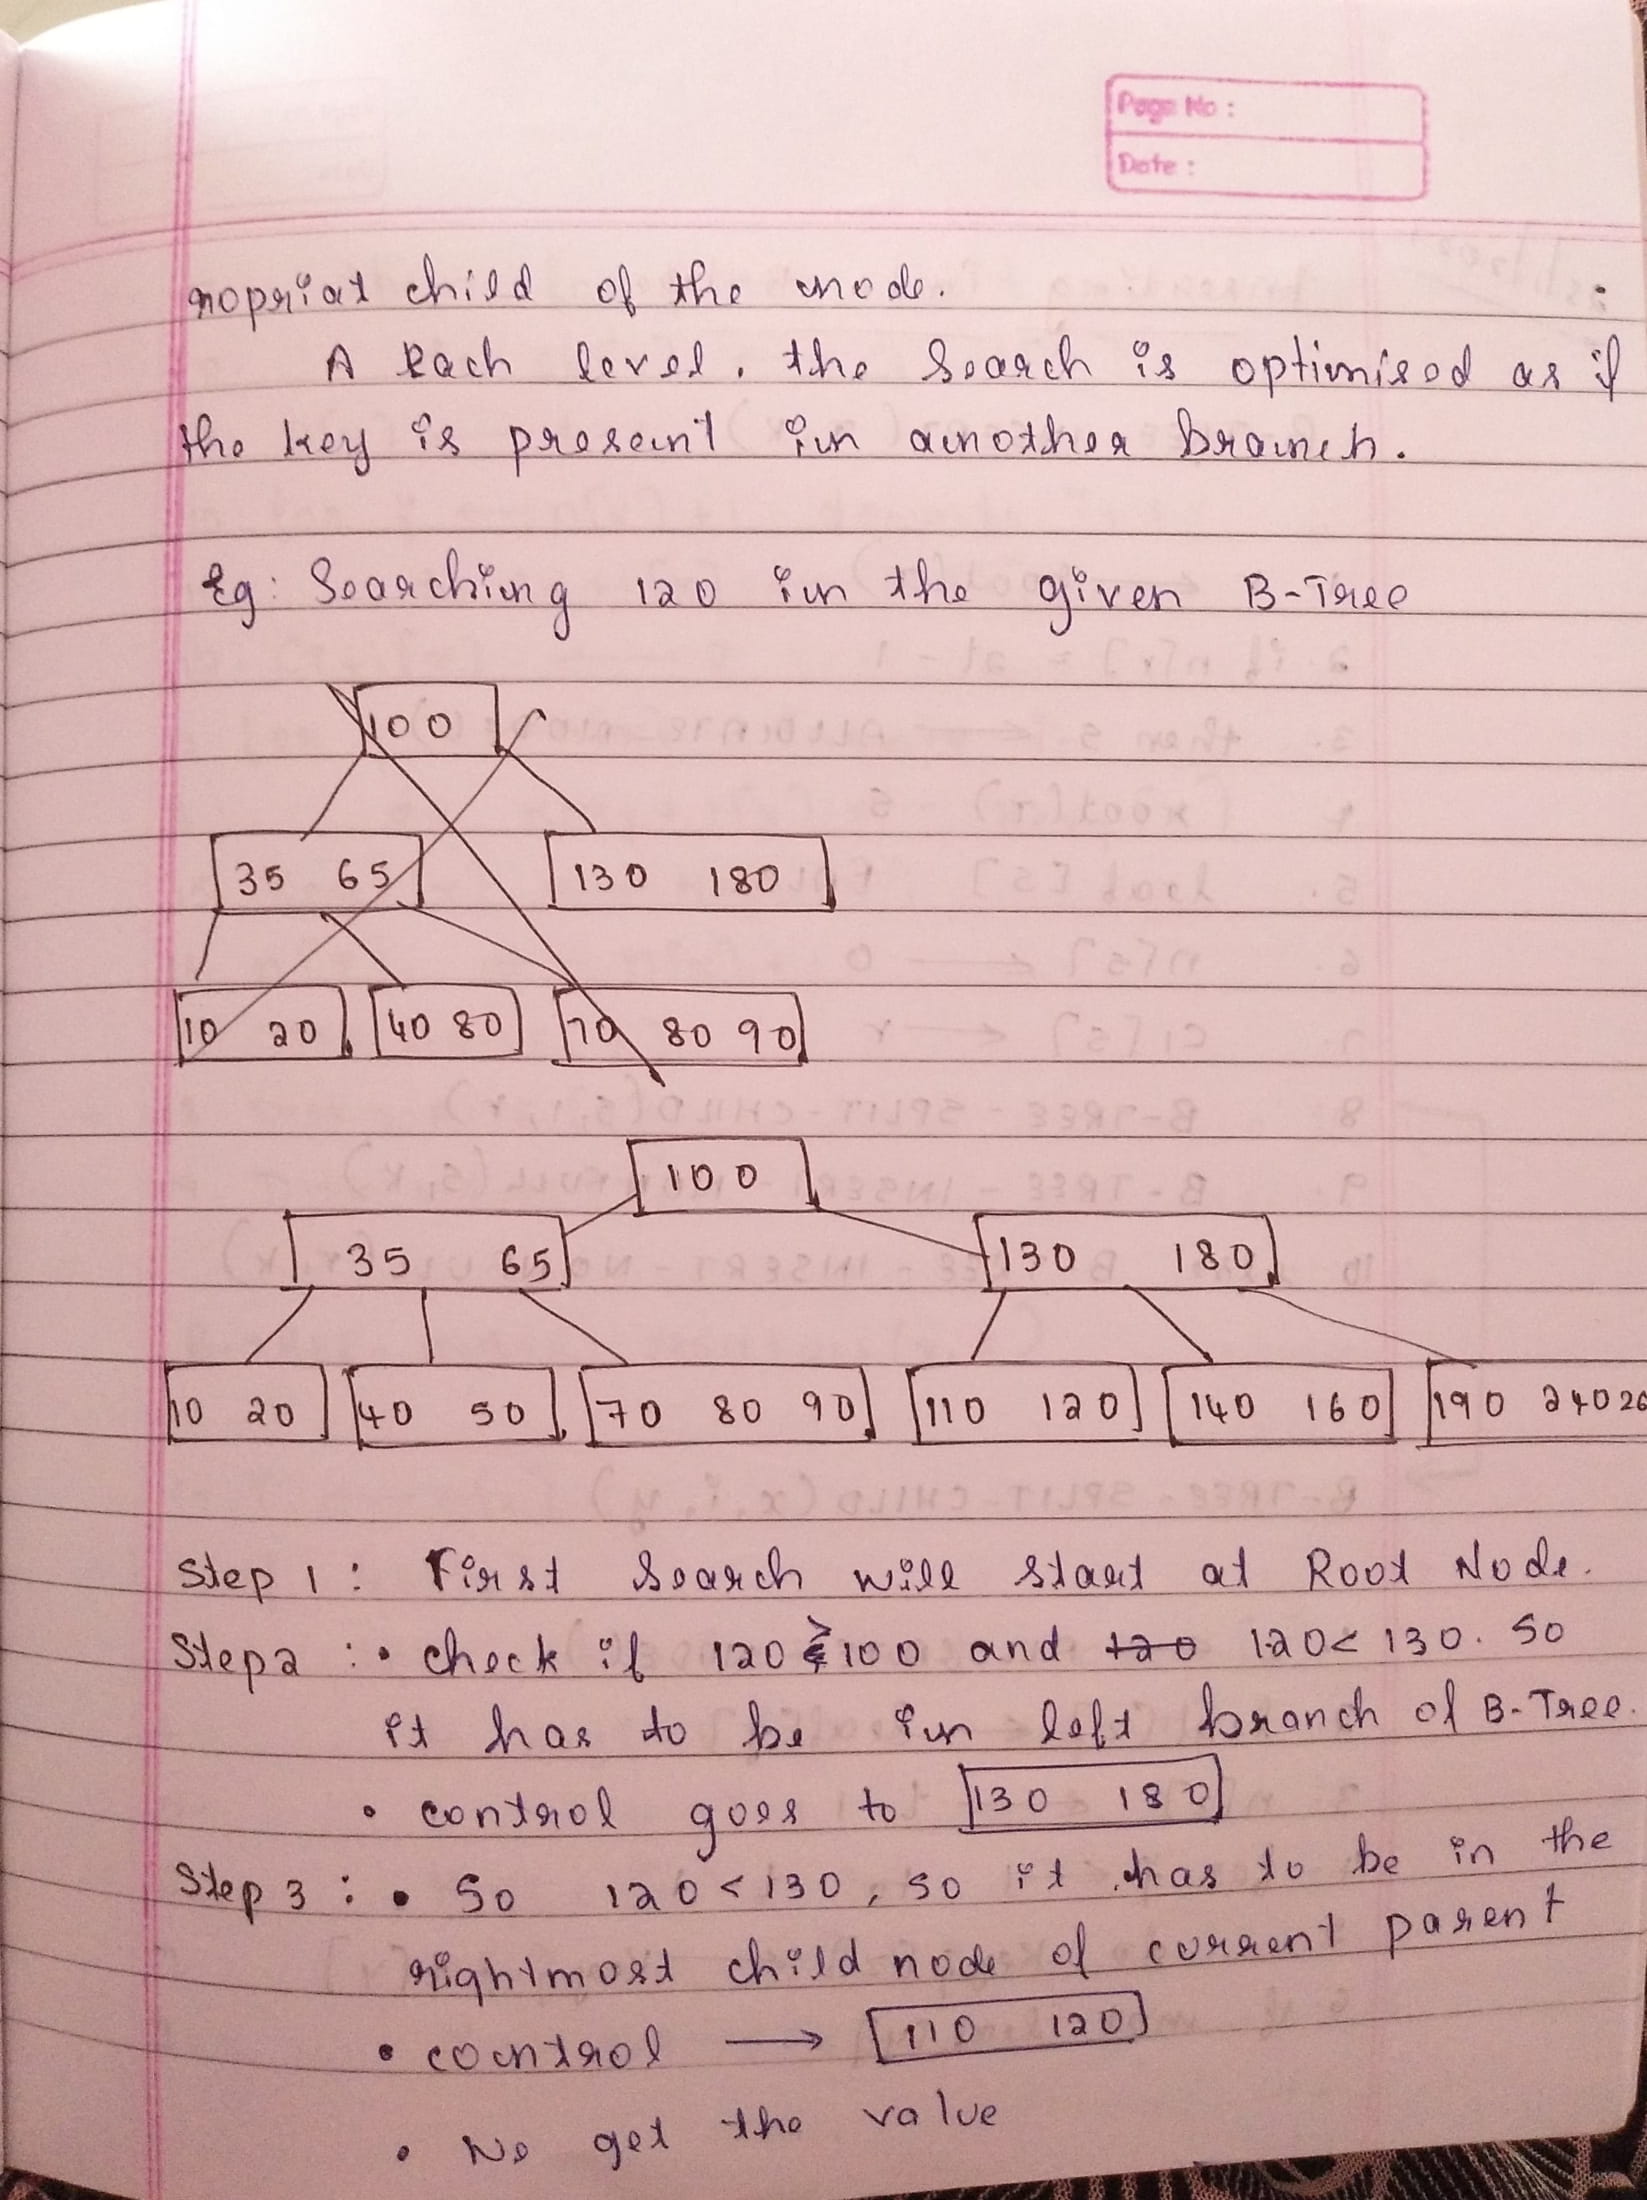 Page No :
Date :
ropriat child of the node.
A Each level, the Search is optimised as if
the key is present in another branch.
Eg: Searching 120 in the given B-Tree
100
35 65 130 180
10 20 40 80 70 80 90
100
35 65 130 180
10 20 40 50 70 80 90 110 120 140 160 190 240 26
Step 1 : First Search will start at Root Node.
Step 2 : • check if 120 > 100 and 120 120 < 130. So
it has to be in left branch of B-Tree.
• control goes to 130 180
Step 3 : • So 120 < 130, so it has to be in the
rightmost child node of current parent
• control → 110 120
• We get the value